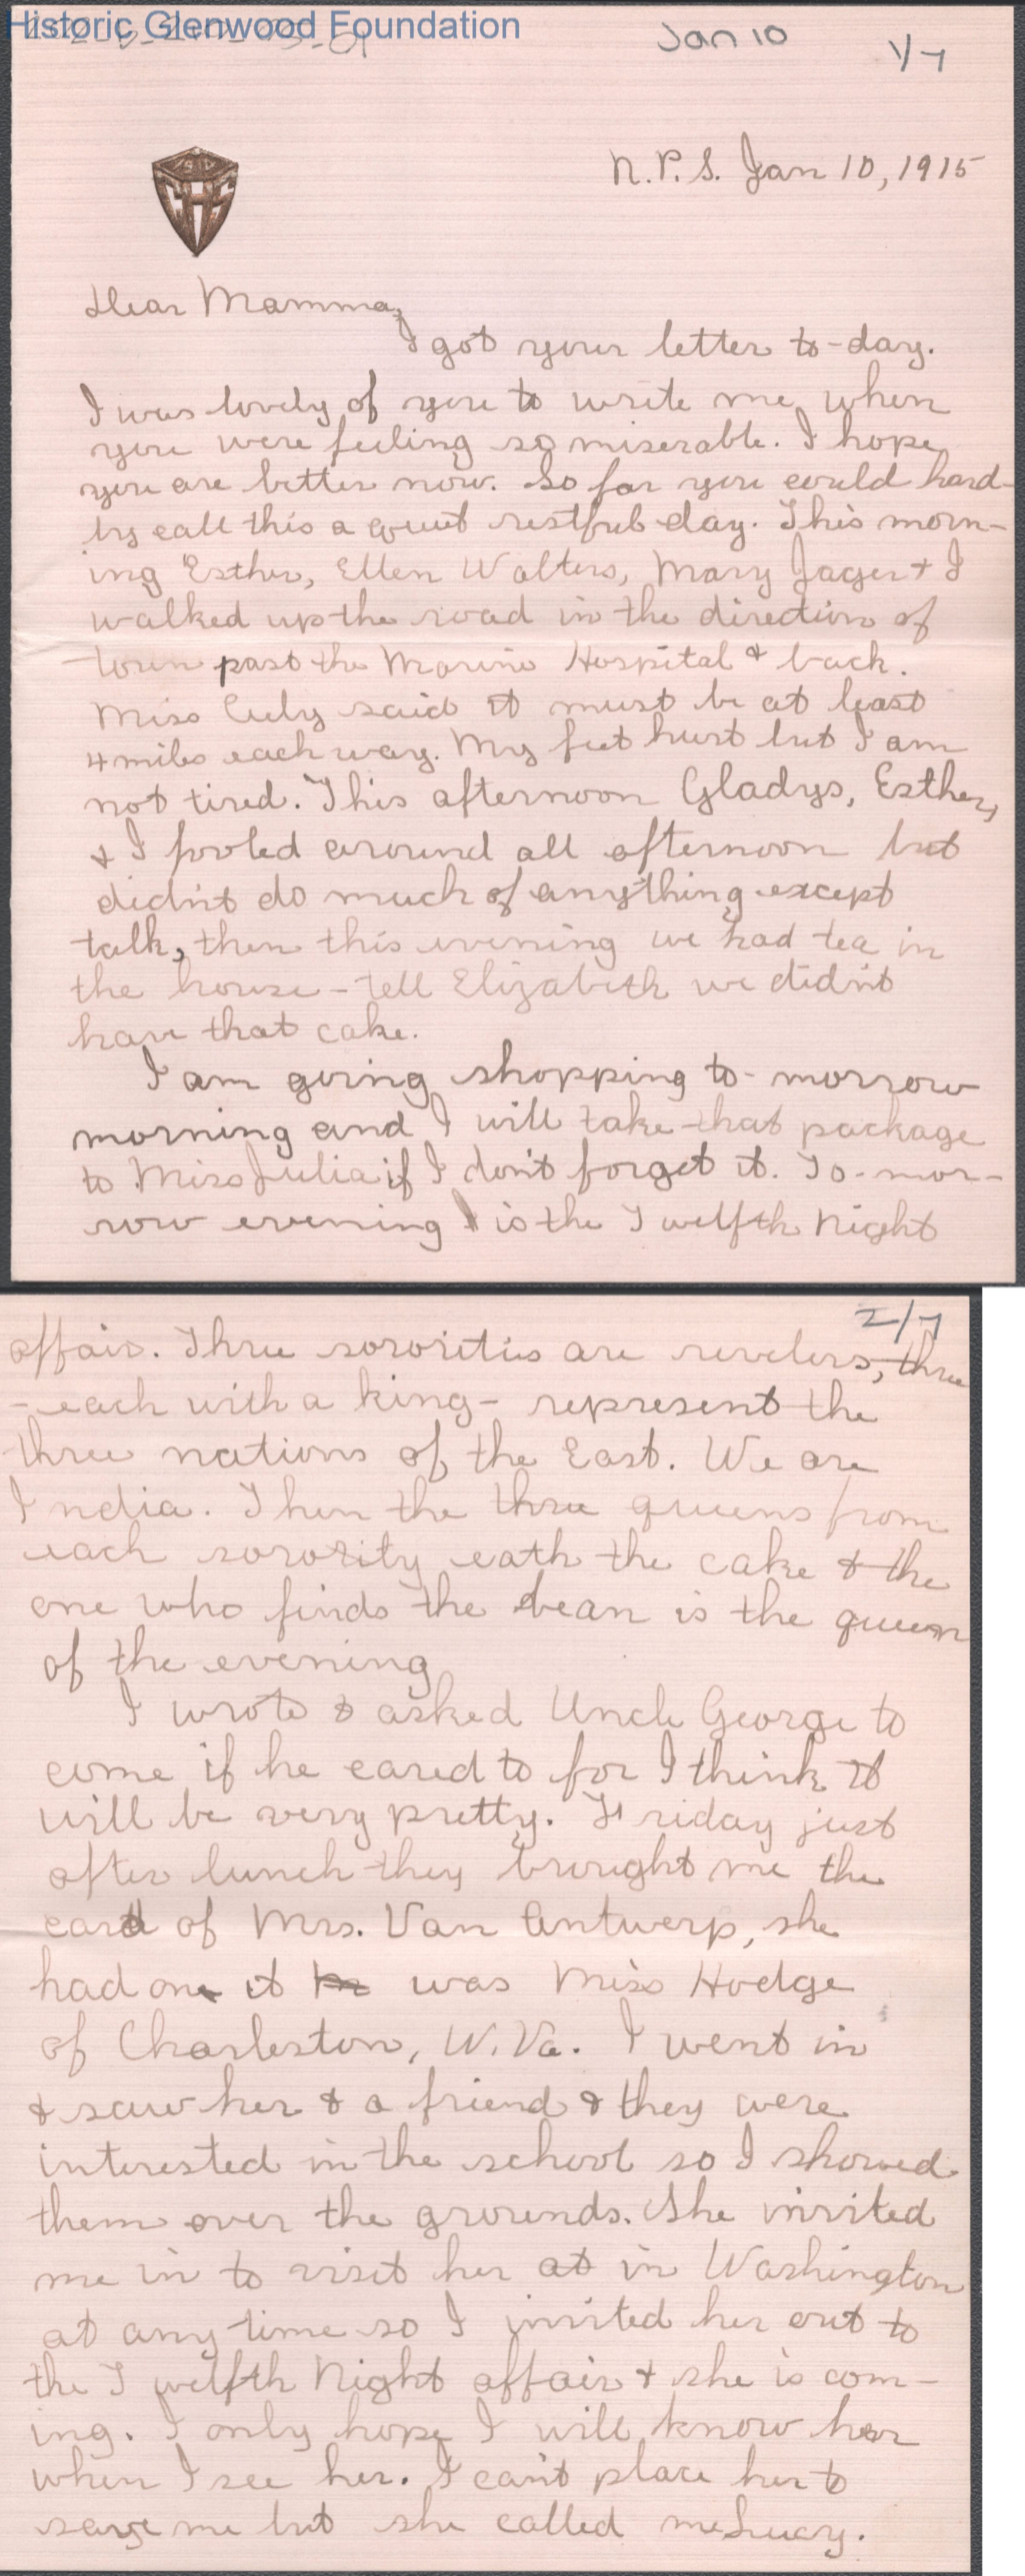 Historic Glenwood Foundation
Jan 10
1/7
N.P.S. Jan 10, 1915
Dear Mamma,
I got your letter to-day.
I was lovely of you to write me when
you were feeling so miserable. I hope
you are better now. So far you could hard-
ly call this a quiet restful day. This morn-
ing Esther, Ellen Walters, Mary Jager & I
walked up the road in the direction of
town past the Marine Hospital & back.
Miss said it must be at least
4 miles each way. My feet hurt but I am
not tired. This afternoon Gladys, Esther,
& I fooled around all afternoon but
didn't do much of anything except
talk, then this evening we had tea in
the house - tell Elizabeth we didn't
have that cake.
I am going shopping to-morrow
morning and I will take that package
to Miss Julia if I don't forget it. To-mor-
row evening is the Twelfth Night
2/7
affair. Three sororities are revelers, three
- each with a king - represent the
three nations of the East. We are
India. Then the three queens from
each sorority eath the cake & the
one who finds the bean is the queen
of the evening
I wrote & asked Uncle George to
come if he cared to for I think it
will be very pretty. Friday just
after lunch they brought me the
card of Mrs. Van Antwerp, she
had one it was Miss Hodge
of Charleston, W.Va. I went in
& saw her & a friend & they were
interested in the school so I showed
them over the grounds. She invited
me in to visit her at in Washington
at any time so I invited her out to
the Twelfth Night affair & she is com-
ing. I only hope I will know her
when I see her. I can't place her to
save me but she called me Lucy.